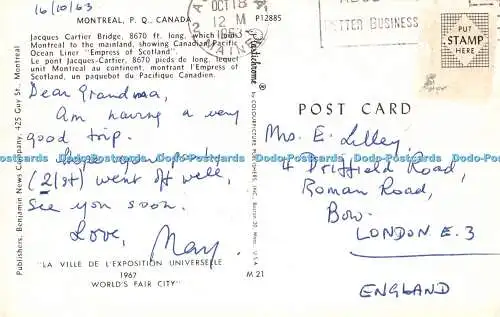 16/10/63
MONTREAL, P. Q., CANADA
P12885
Jacques Cartier Bridge, 8670 ft. long, which bound
Montreal to the mainland, showing Canadian Pacific
Ocean Liner "Empress of Scotland".
Le pont Jacques-Cartier, 8670 pieds de long, lequel
unit Montreal au continent, montrant l'Empress of
Scotland, un paquebot du Pacifique Canadien.
Dear Grandma,
Am having a very
good trip.
Hope your party
(21st) went off well,
See you soon.
Love, May.
"LA VILLE DE L'EXPOSITION UNIVERSELLE
1967
WORLD'S FAIR CITY"
M 21
Publishers, Benjamin News Company, 425 Guy St. Montreal
Plastichrome
by COLOURPICTURE PUBLISHERS, INC. Boston 30, Mass., U.S.A.
OCT 18
12 M
BETTER BUSINESS
PUT
STAMP
HERE
POST CARD
Mrs. E. Lilley,
4 Driffield Road,
Roman Road,
Bow.
LONDON E.3
ENGLAND
Dodo-Postcards Dodo-Postcards Dodo-Postcards Dodo-Postcards Dodo-Postcards